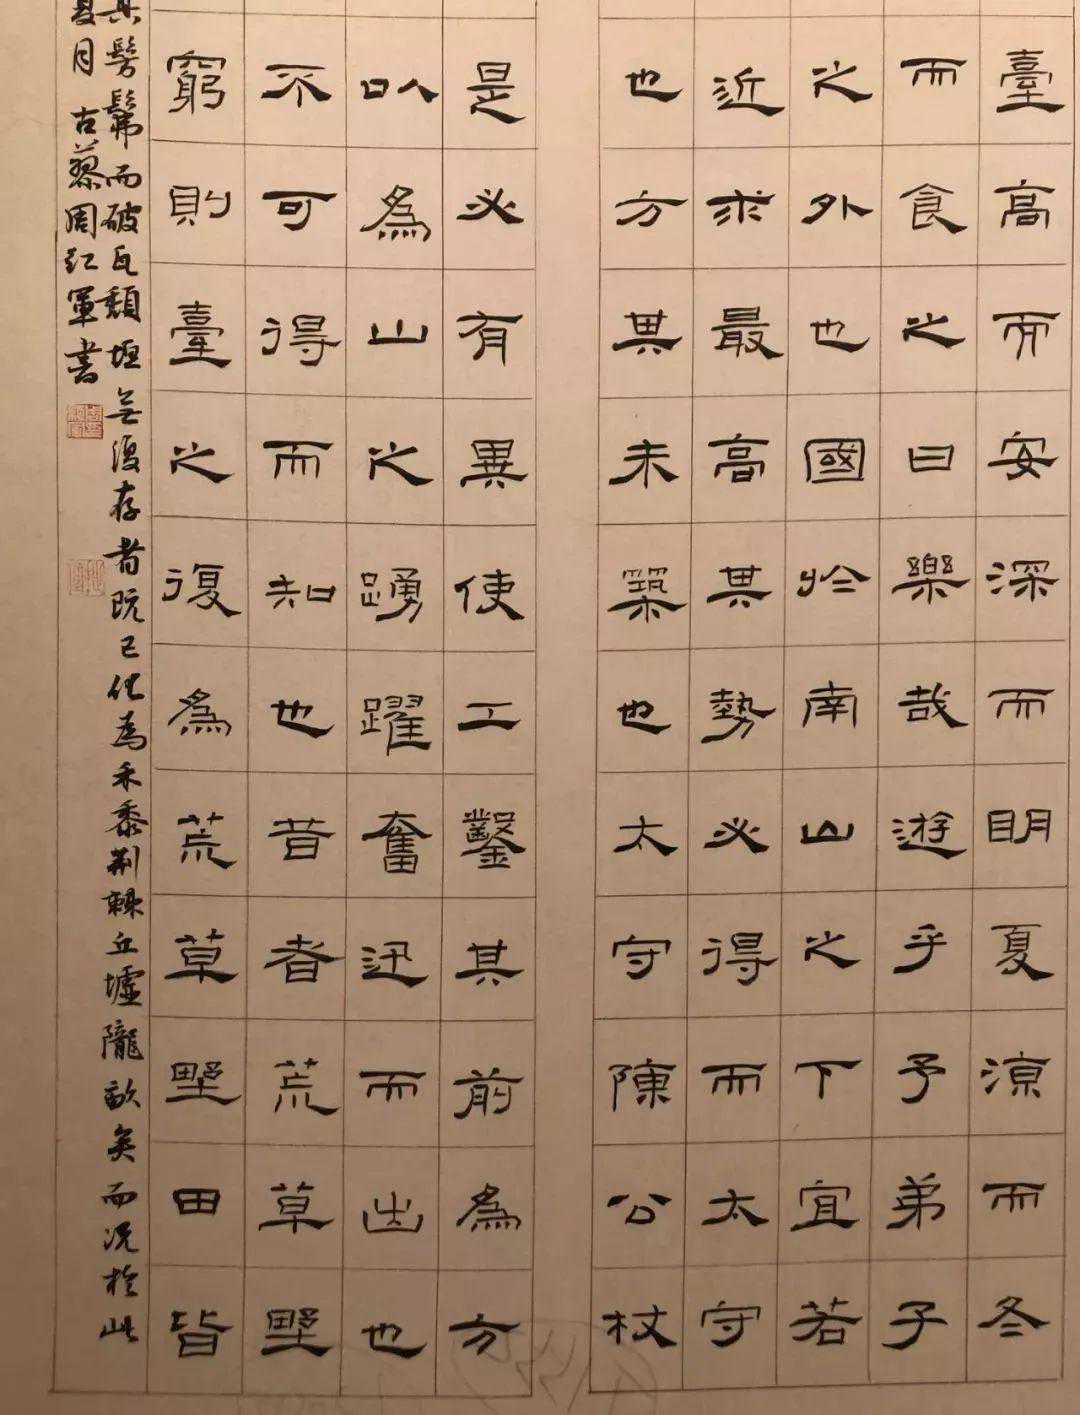 臺高而安深而明夏涼而冬
而食之曰樂哉遊乎予弟子
之外也國於南山之下宜若
近求最高其勢必得而太守
也方其未築也太守陳公杖
是必有異使工鑿其前為方
以為山之踴躍奮迅而出也
不可得而知也昔者荒草野
窮則臺之復為荒草野田皆
其髣髴而破瓦頹垣無復存者既已化為禾黍荊棘丘墟隴畝矣而況於此
夏月古蔡周红軍書